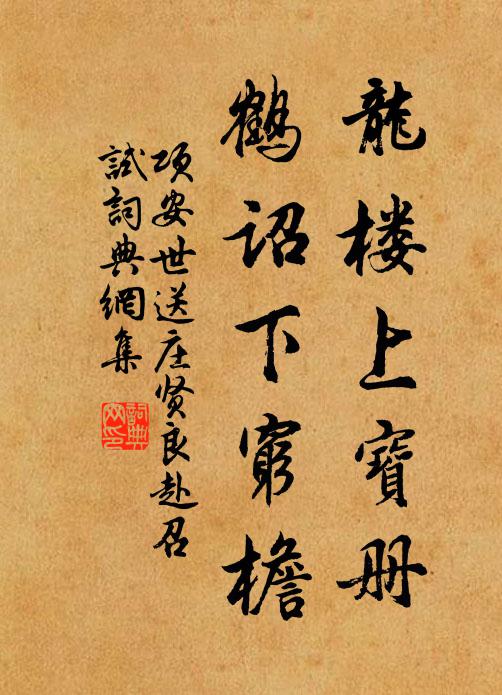 龍楼上寶册
鶴詔下窮檐
项安世送庄贤良赴召
試詞典網集
詞典
网印